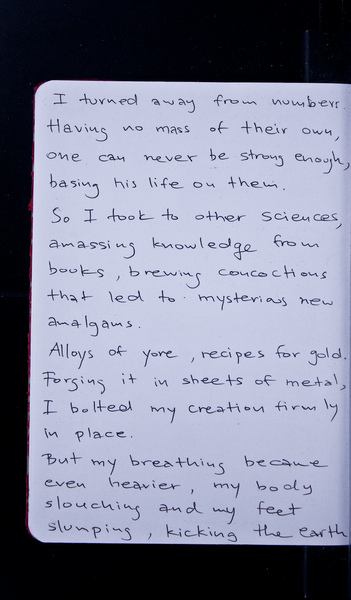 I turned away from numbers.
Having no mass of their own,
one can never be strong enough,
basing his life on them.
So I took to other sciences,
amassing knowledge from
books, brewing concoctions
that led to mysterious new
amalgams.
Alloys of yore, recipes for gold.
Forging it in sheets of metal,
I bolted my creation firmly
in place.
But my breathing became
even heavier, my body
slouching and my feet
slumping, kicking the earth